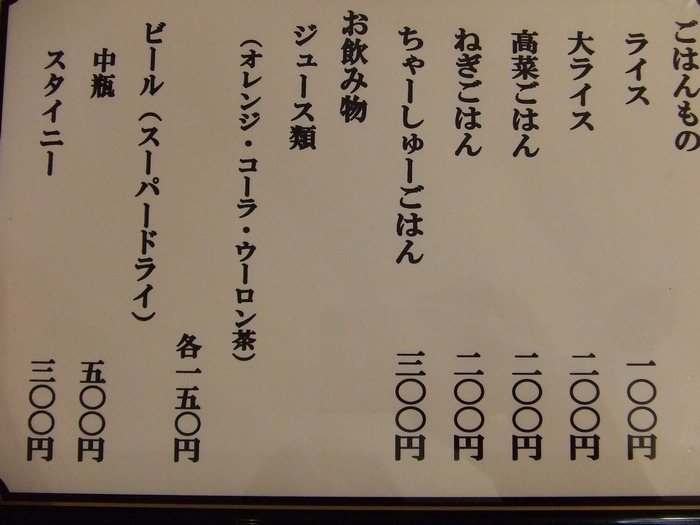 ごはんもの
ライス 一〇〇円
大ライス 二〇〇円
高菜ごはん 二〇〇円
ねぎごはん 二〇〇円
ちゃーしゅーごはん 三〇〇円
お飲み物
ジュース類
（オレンジ・コーラ・ウーロン茶）
各一五〇円
ビール（スーパードライ）
中瓶 五〇〇円
スタイニー 三〇〇円